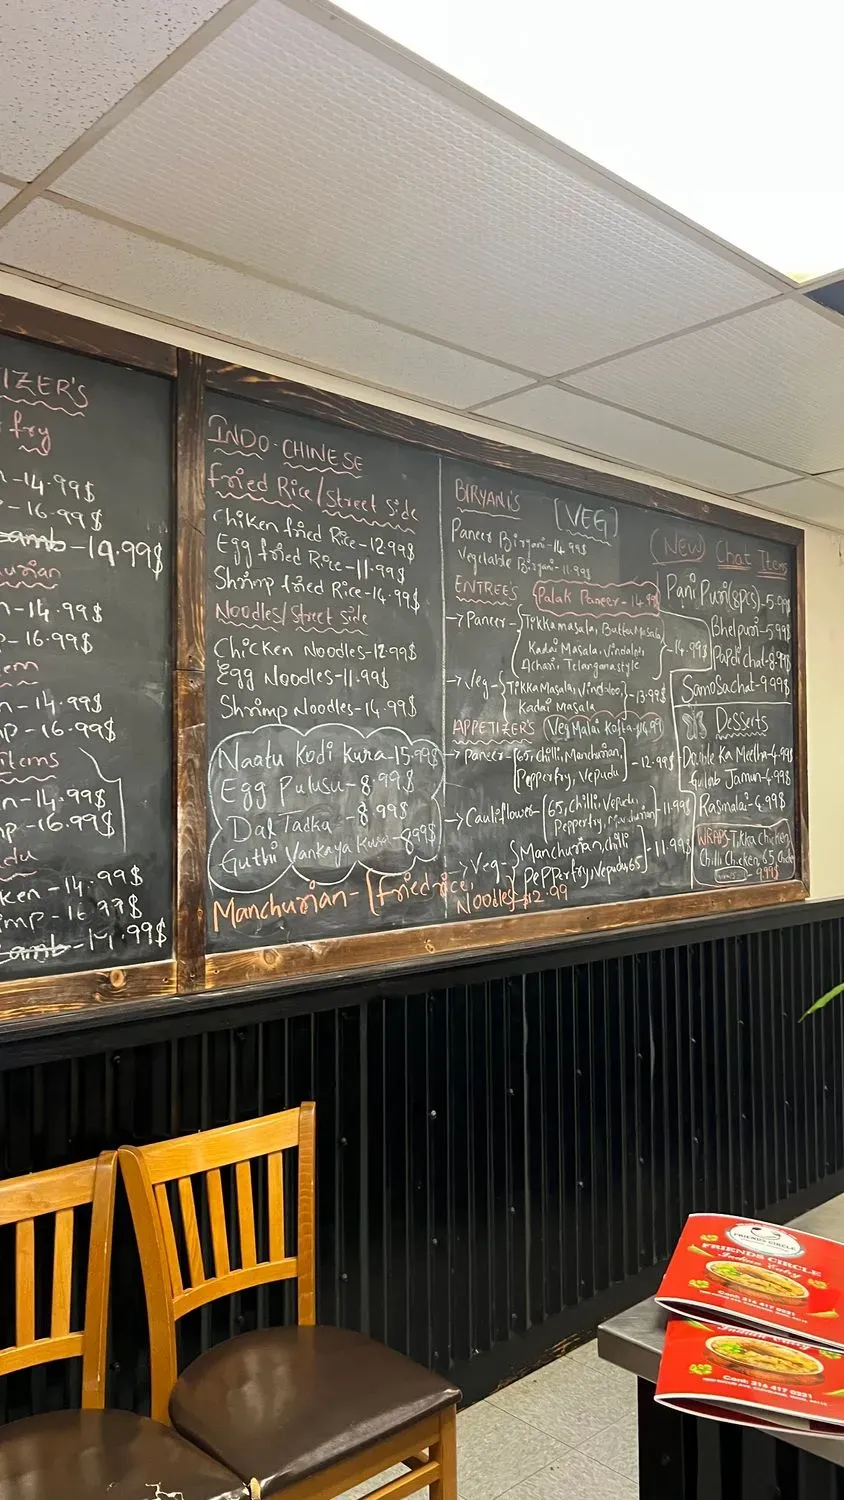 IZER'S
fry
-14.99$
-16.99$
amb-19.99$
urian
n-14.99$
-16.99$
em
n-14.99$
p-16.99$
items
n-14.99$
p-16.99$
du
ken-14.99$
imp-16.99$
amb-14.99$
INDO-CHINESE
fried Rice/Street Side
Chiken fried Rice-12.99$
Egg fried Rice-11.99$
Shrimp fried Rice-14.99$
Noodles/Street Side
Chicken Noodles-12.99$
Egg Noodles-11.99$
Shrimp Noodles-14.99$
Naatu Kodi Kura-15.99$
Egg Pulusu-8.99$
Dal Tadka-8.99$
Guthi Vankaya Kura-8.99$
Manchurian-[fried rice,
Noodles-$12.99
[VEG]
BIRYANI'S
Paneer Biryani-14.99$
Vegetable Biryani-11.99$
ENTREE'S
Palak Paneer-14.99$
→Paneer-{Tikkamasala, Butter Masala,
Kadai Masala, Vindaloo,
Achari, Telangana style}-14.99$
→Veg-{Tikka Masala, Vindaloo,
Kadai Masala}-13.99$
APPETIZER'S
Veg Malai Kofta-14.99
→Paneer-[65, chilli, Manchurian,
Pepperfry, Vepudu]-12.99$
→Cauliflower-[65, Chilli, Vepudu,
Pepperfry, Manchurian]-11.99$
→Veg-{Manchurian, chilli
Pepperfry, Vepudu, 65]-11.99$
(New) Chat Items
Pani Puri(8pcs)-5.99$
Bhelpuri-5.99$
Papdi chat-8.99$
Samosachat-9.99$
Desserts
Double Ka Meetha-4.99$
Gulab Jamun-4.99$
Rasmalai-4.99$
WRAPS-Tikka Chicken,
Chilli Chicken, 65,
9.99$
FRIENDS CIRCLE
FRIENDS CIRCLE
Indian Eatry
Cont: 216 417 0221
Indian Eatry
Cont: 216 417 0221